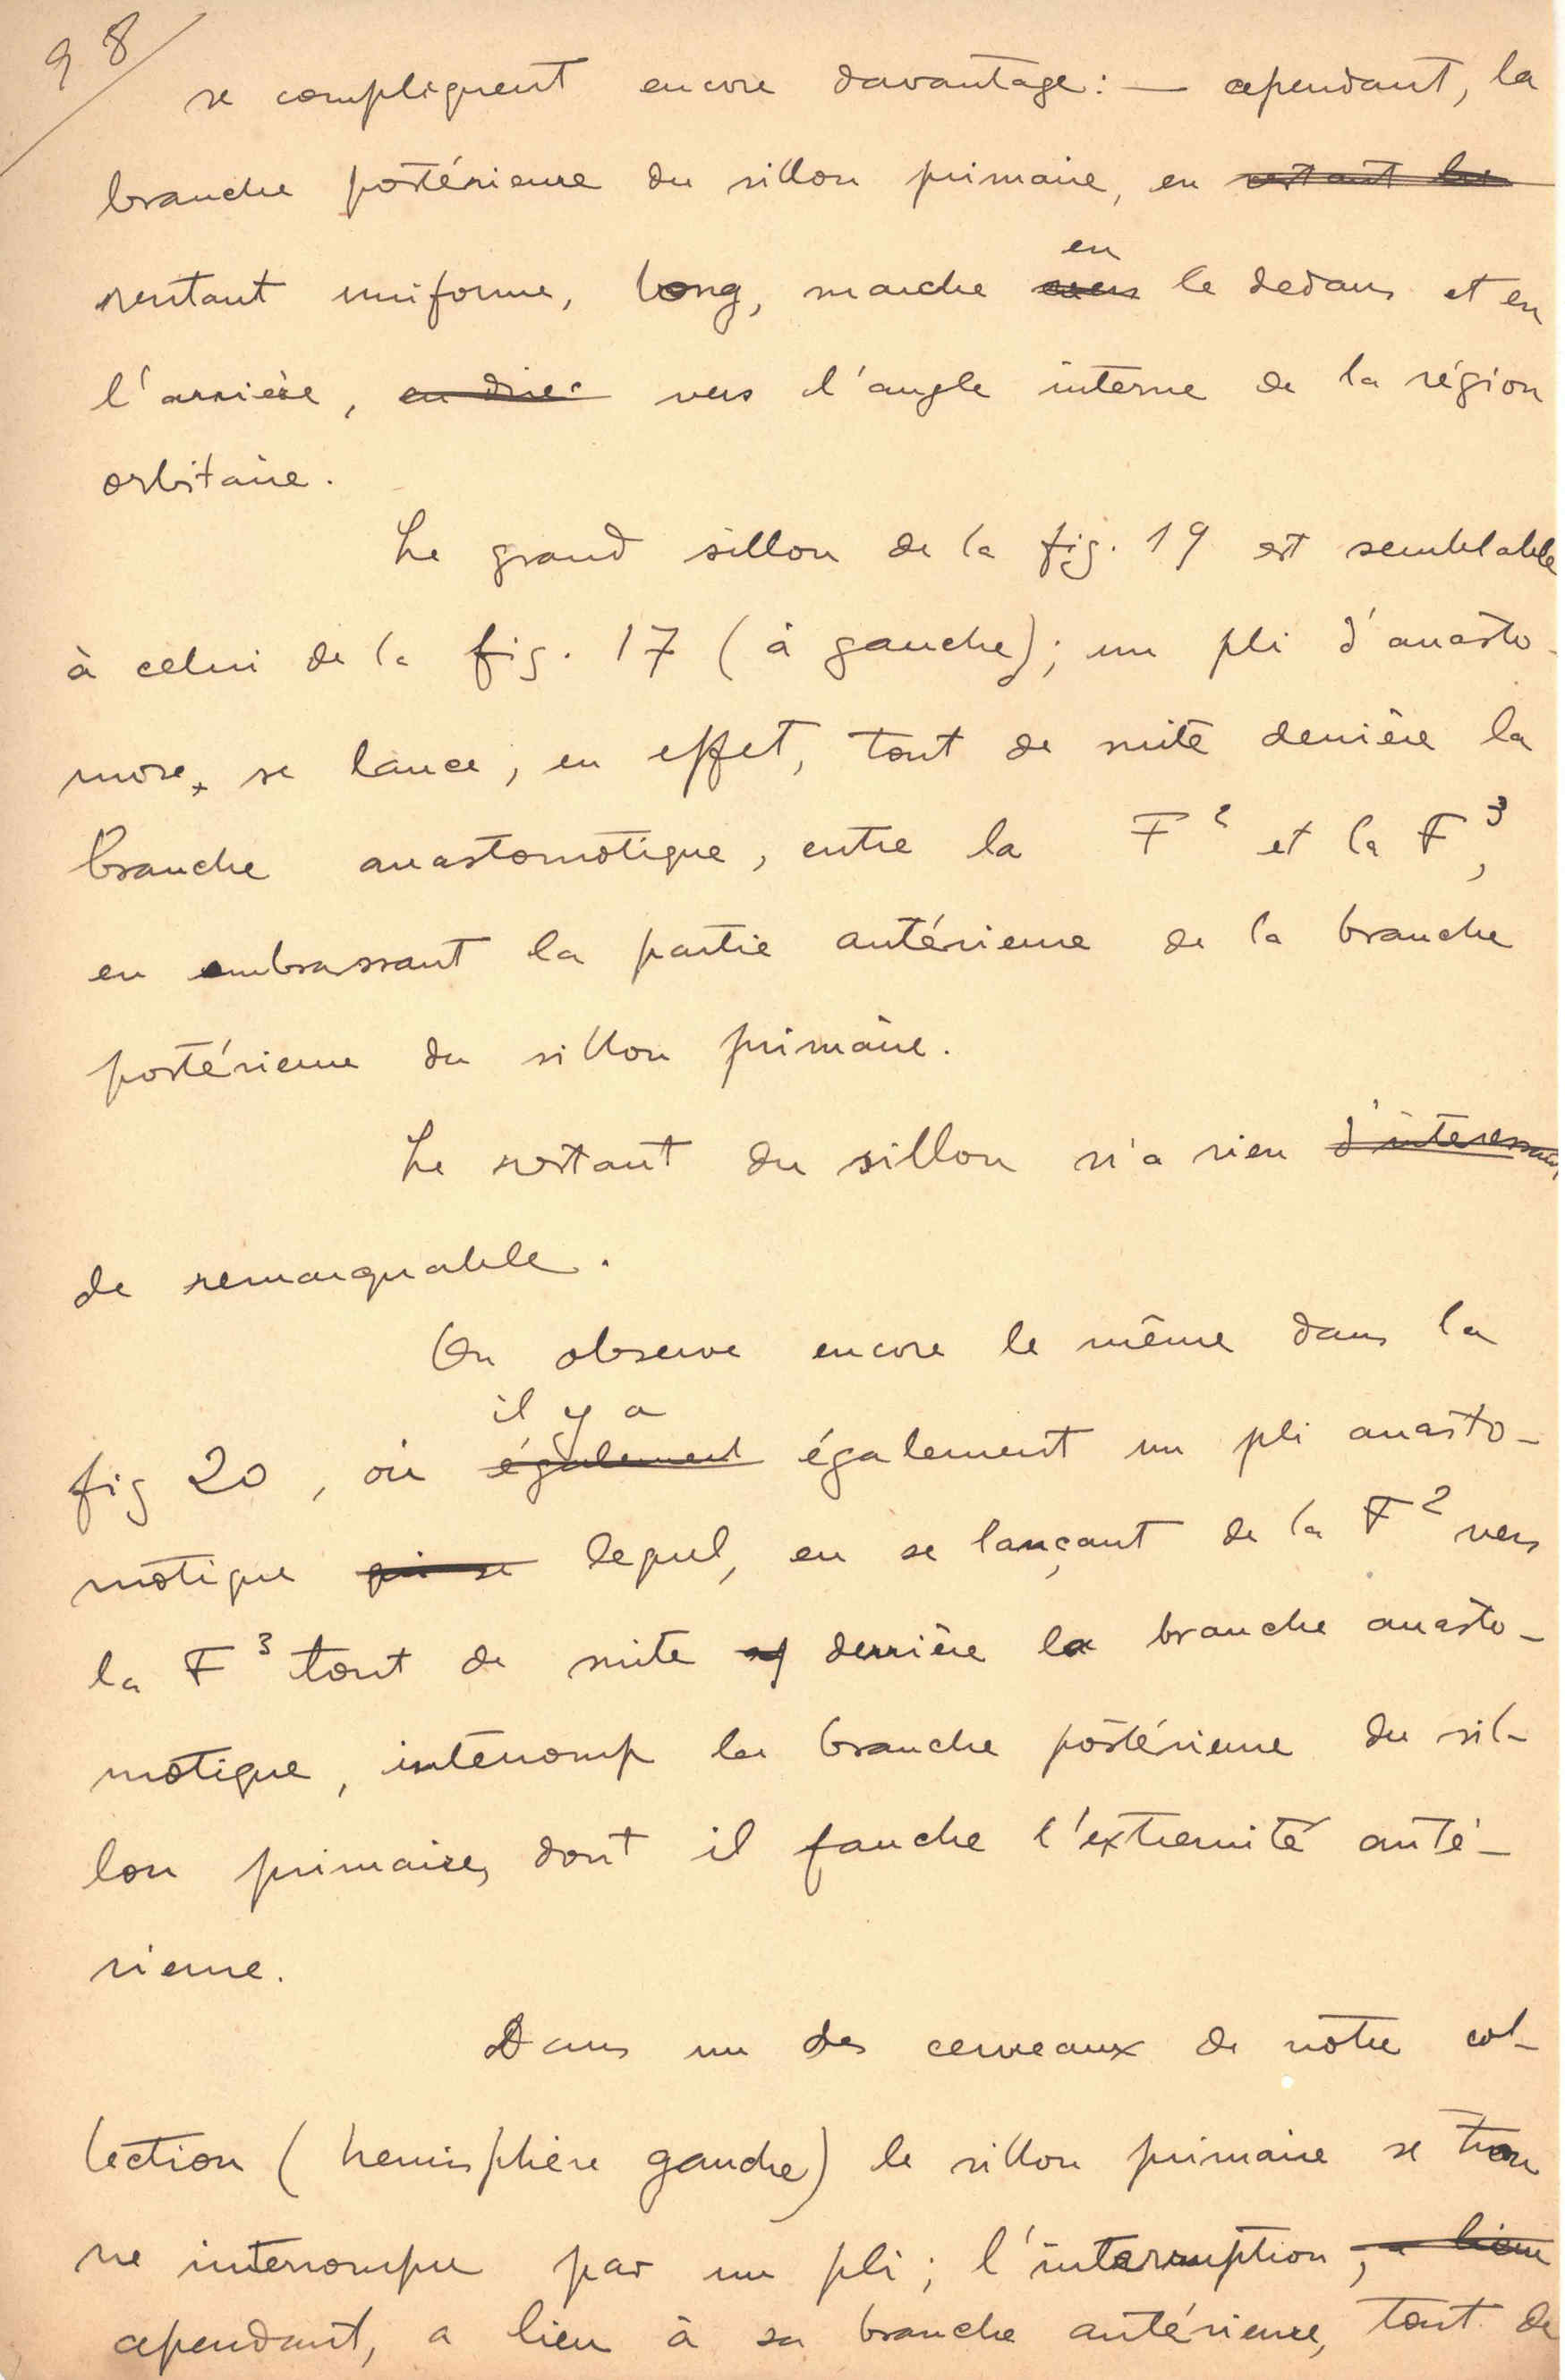 98
se compliquent encore davantage: — cependant, la
branche postérieure du sillon primaire, en restant les
restant uniforme, long, marche en vers le dedans et en
l'arrière, en direc vers l'angle interne de la région
orbitaire.
Le grand sillon de la fig. 19 est semblable
à celui de la fig. 17 (à gauche); un pli d'anasto-
mose, se lance, en effet, tout de suite derrière la
branche anastomotique, entre la F² et la F³,
en embrassant la partie antérieure de la branche
postérieure du sillon primaire.
Le restant du sillon n'a rien d'interessant
de remarquable.
On observe encore le même dans la
il y a
fig 20, où également également un pli anasto-
motique qui se lequel, en se lançant de la F² vers
la F³ tout de suite derrière la branche anasto-
motique, interromp la branche postérieure du sil-
lon primaire, dont il fauche l'extremité anté-
rieure.
Dans un des cerveaux de notre col-
lection (hemisphère gauche) le sillon primaire se trou
ve interrompu par un pli; l'interruption, a lieu
cependant, a lieu à sa branche antérieure, tout de